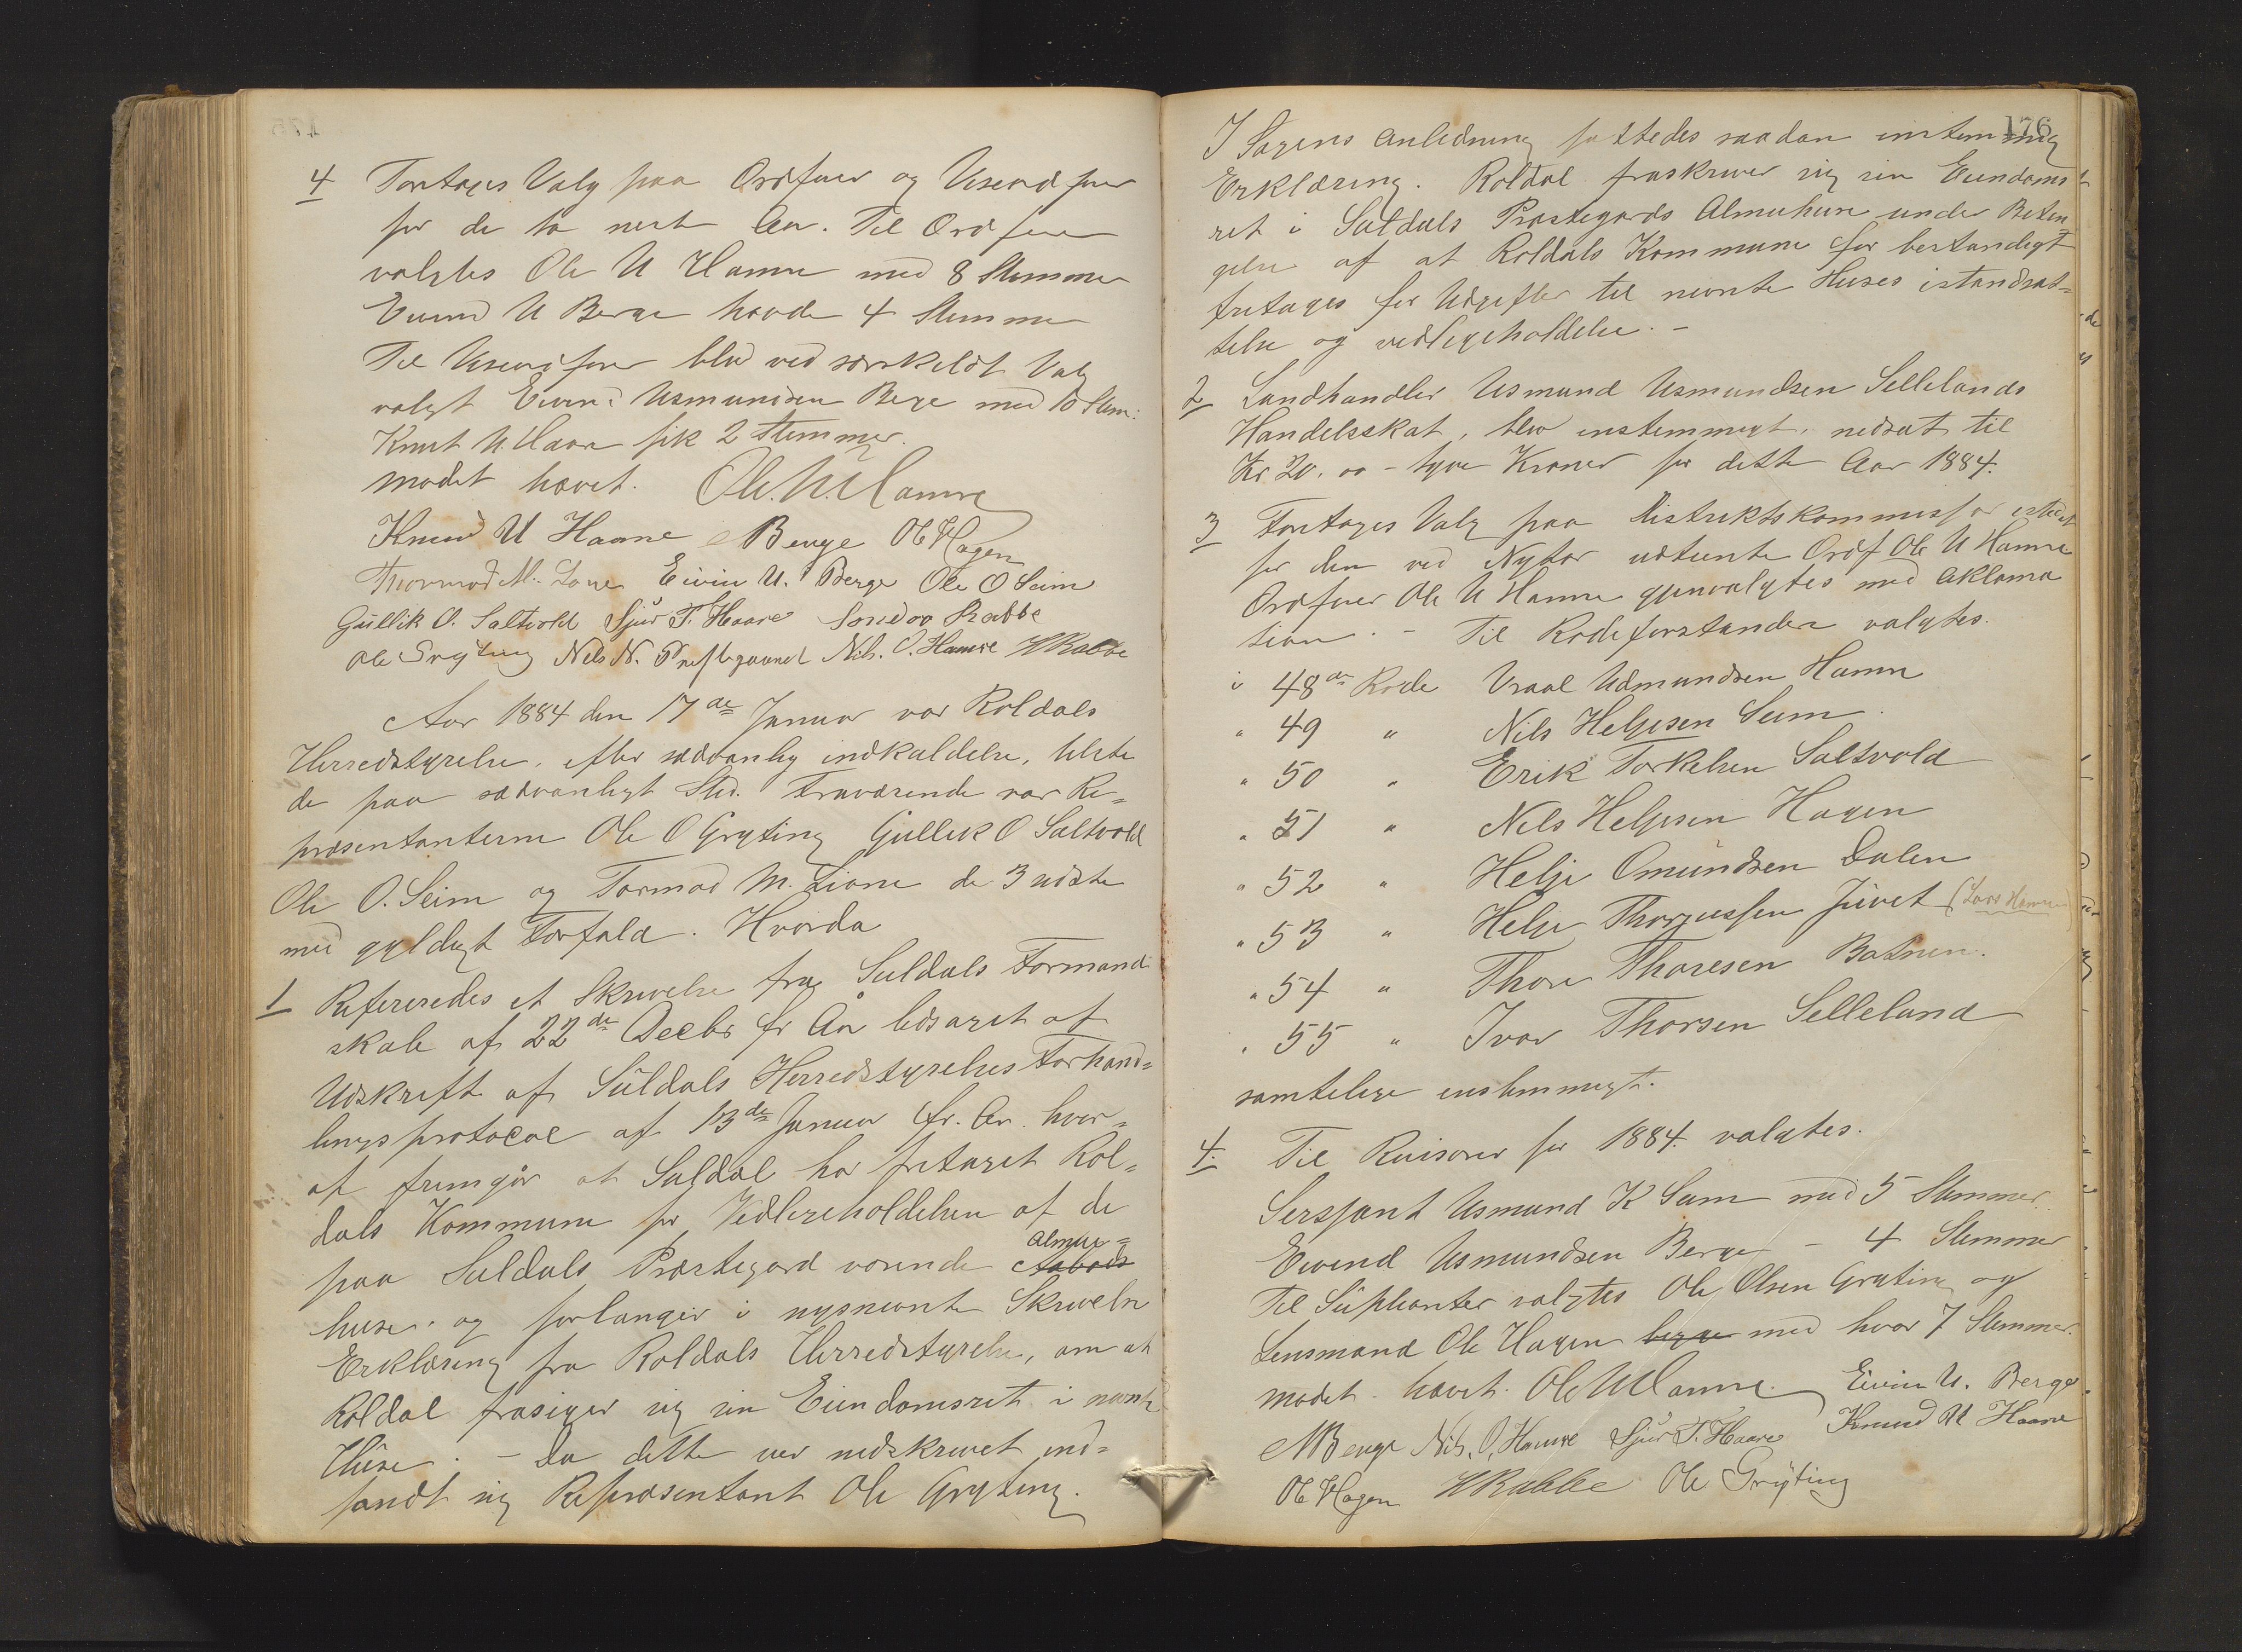 4 Foretages Valg paa Ordfører og Viseordfører
for de to neste Aar. Til Ordfører
valgtes Ole U Hamre med 8 Stemmer
Eivind U Berge havde 4 Stemmer
Til Viseordfører blev ved særskeldt Valg
valgt Eivind Usmundsen Berge med 10 Stem:
Knut U. Haare fik 2 Stemmer.
Mødet hævet. Ole. U. Hamre
Knud U Haare Berge Ol Hagen
Thormod M. Lone Eivin U. Berge Ole O Seim
Gullik O. Saltvold Sjur T. Haare Sondov Rabbe
Ole Gryting Nels N. Prestegaard Nils. O. Hamre HRabbe
Aar 1884 den 17de Januar var Røldals
Herredstyrelse, efter sædvanlig indkaldelse, tilste
de paa sædvanligt Sted. Fraværende var Re=
præsentanterne Ole O Gryting Gullik O Saltvold
Ole O. Seim og Tormod M. Lione de 3 sidste
med gyldigt Forfald. Hvorda
1 Refereredes et Skrivelse fra Suldals Formand
skab af 22de Decbr f Aar ledsaget af
Udskrift af Suldals Herredstyrelses Forhand=
lingsprotocol af 13de Januar f. Aar. hvor=
af fremgår at Suldal har fritaget Røl=
dals Kommune for Vedligeholdelsen af de
paa Suldals Præstegard værende Almue=
huse. og forlanger i nysnevnte Skrivelse
Erklæring fra Røldals Herredstyrelse, om at
Røldal frasiger sig sin Eiendomsret i nevnte
Huse. – Da dette var nedskrevet ind=
fandt sig Representant Ole Gryting.
176
I Sagens Anledning sattedes saadan enstemmig
Erklæring. Røldal fraskriver sig sin Eiendoms
ret i Suldals Præstegards Almuhuse under Beten
gelse af at Røldals Kommune for bestandigt
fritages for Udgifter til nevnte Huses istandsæt=
telse og vedligeholdelse. –
2 Landhandler Usmund Usmundsen Sellelands
Handelsskat, blev enstemmigt nedsat til
Kr. 20.00 – tyve Kroner for dette Aar 1884.
3 Foretages Valg paa Distriktskommissær istedet
for den ved Nytår udtrente Ordf Ole U Hamre
Ordfører Ole U Hamre gjenvalgtes med Aklama
tion. – Til Rodeforstandere valgtes.
i 48de Rode Vraal Usmundsen Hamre
" 49 " Nils Helgesen Seim
" 50 " Erik Torkelsen Saltvold
" 51 " Nils Helgesen Hagen
" 52 " Helje Omundsen Dalen
" 53 " Helje Thorgussen Juvet (Lars Hamre)
" 54 " Thore Thoresen Botnen.
" 55 " Ivar Thorsen Selleland
samtelige enstemmigt.
4. Til Revisorer for 1884. valgtes.
Sersjant Usmund K Seim med 5 Stemmer.
Eivend Usmundsen Berge – 4 Stemmer
Til Suplianter valgtes Ole Olsen Gryting og
Lensmand Ole Hagen begge med hver 7 Stemmer.
Mødet hævet. Ole U Hamre. Eivin U. Berge
Berge Nils. O. Hamre Sjur T. Haare Knud U Haare
Ol Hagen HRabbe Ole Gryting